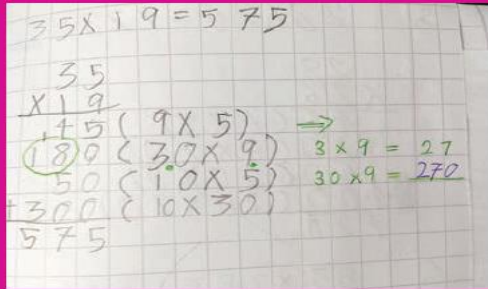 35×19=575
35
×19
45(9×5)
180(30×9)
50(10×5)
+300(10×30)
575
→
3×9=27
30×9=270